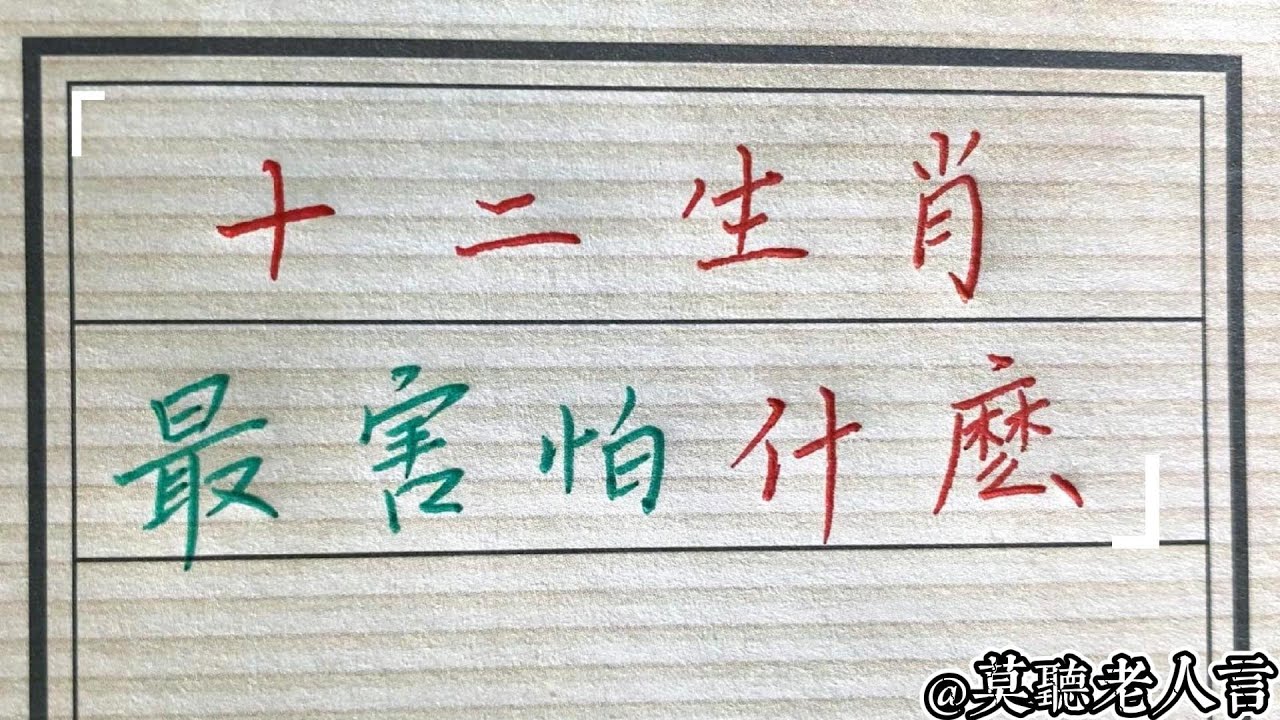 十二生肖
最害怕什麽
@莫聽老人言